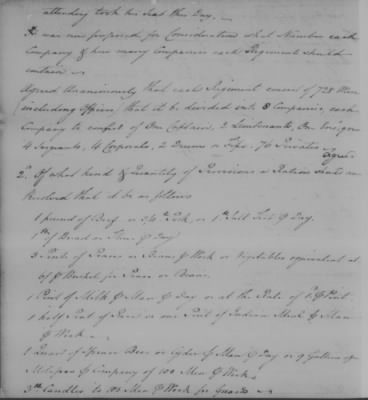 attending took his Seat this Day. —
It was now proposed for Consideration what Number each
Company & how many Companies each Regiment should
contain —
Agreed Unanimously that each Regiment consist of 728 Men
including Officers, that it be divided into 8 Companies, each
Company to consist of One Captain, 2 Lieutenants, One Ensign
4 Serjeants, 4 Corporals, 2 Drums or Fifes, 76 Privates
2d. Of what kind & Quantity of Provisions a Ration
Resolved that it be as follows
1 pound of Beef or 3/4 lb Pork or 1 lb Salt Fish Day
1 lb of Bread or Flour Day
3 Pints of Pease or Beans Week or Vegetables equivalent at
Bushel for Pease or Beans
1 Pint of Milk Man Day or at the Rate of Pint
1 half Pint of Rice or one Pint of Indian Meal Man
Week —
1 Quart of Spruce Beer or Cyder Man Day or 9 Gallons
Molasses Company of 100 Men Week —
3 lb Candles to 100 Men Week for Guards —